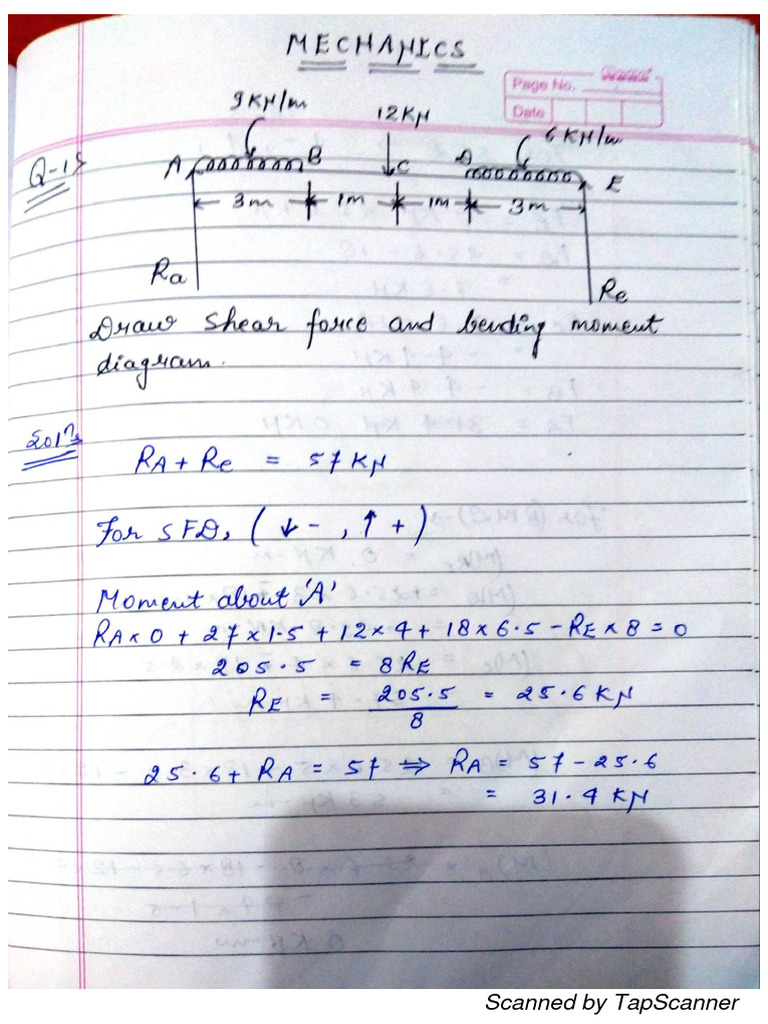 MECHANICS
Page No.
Date
9KN/m
12KN
6 KN/m
Q-15
A B C D E
3m 1m 1m 3m
Ra Re
Draw shear force and bending moment
diagram.
RA + Re = 57 KN
For SFD, ( ↓ - , ↑ + )
Moment about 'A'
RA × 0 + 27 × 1.5 + 12 × 4 + 18 × 6.5 - RE × 8 = 0
205.5 = 8RE
RE = 205.5/8 = 25.6 KN
25.6 + RA = 57 ⇒ RA = 57 - 25.6
= 31.4 KN
Scanned by TapScanner